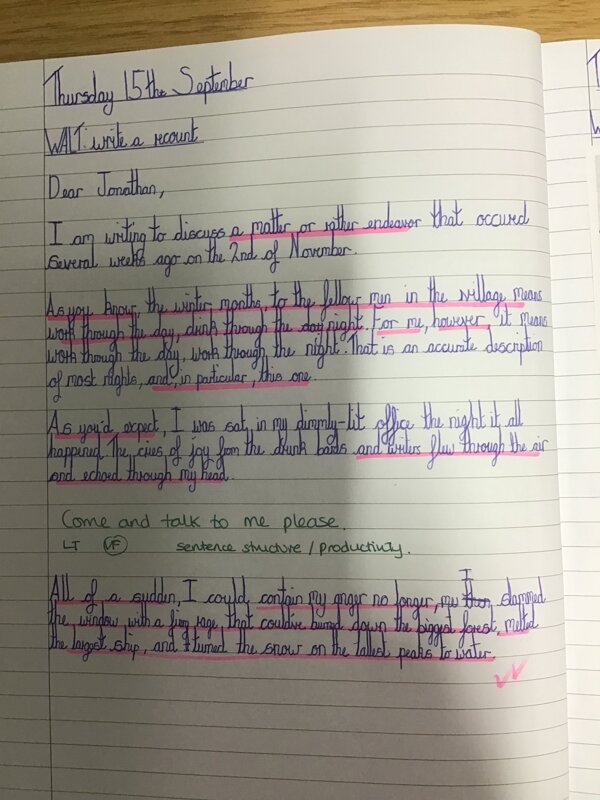 Thursday 15the September
WALT: write a recount
Dear Jonathan,
I am writing to discuss a matter or rather endeavor that occured
several weeks ago on the 2nd of November.
As you know, the winter months, to the fellow men in the village means
work through the day, drink through the day night. For me, however, it means
work through the day, work through the night. That is an accurate description
of most nights, and, in particular, this one.
As you'd expect, I was sat in my dimmly-lit office the night it all
happened. The cries of joy from the drunk bards and writers flew through the air
and echoed through my head.
Come and talk to me please.
LT VF sentence structure / productivity.
All of a sudden, I could contain my anger no longer, I slammed
the window with a rage that could've burned down the biggest forest, melted
the largest ship, and turned the snow on the tallest peaks to water.